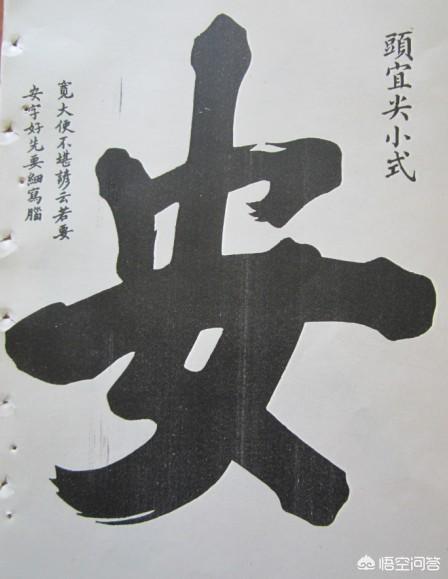 頭宜尖小式
安
寬大便不堪諺云若要
安字好先要細寫腦
悟空问答